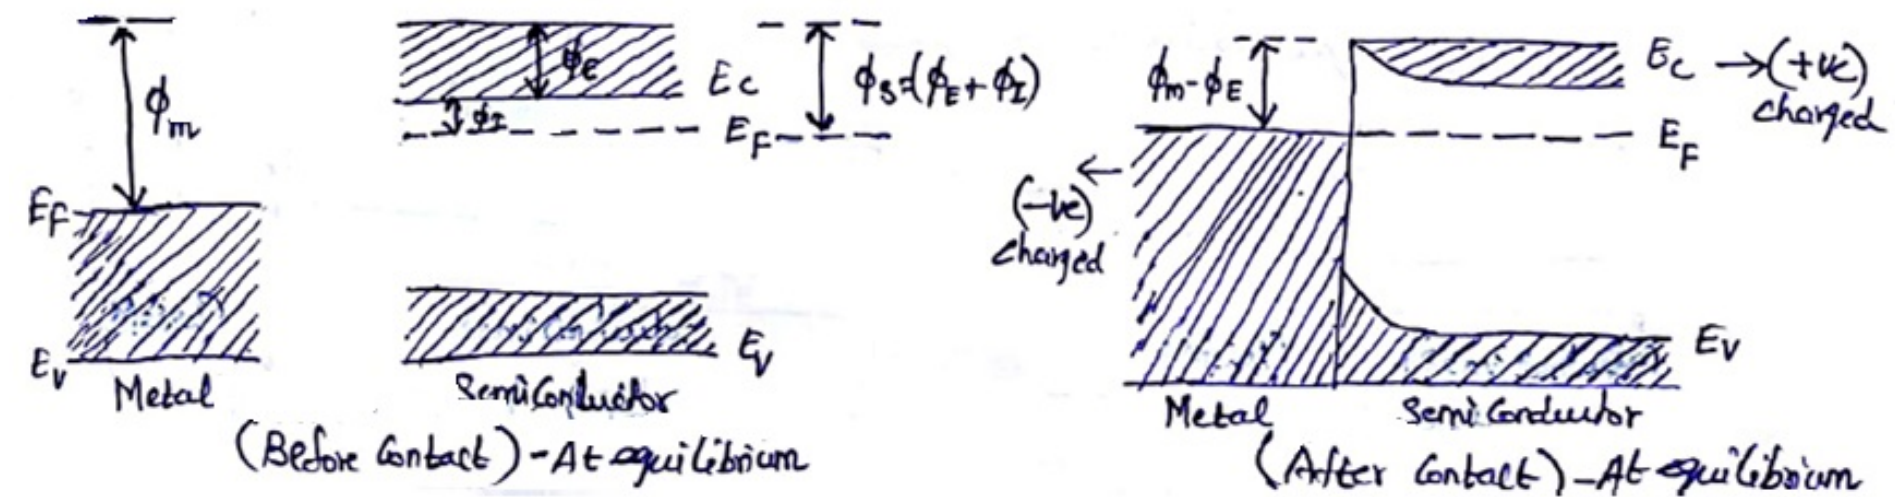 ϕm
EF
Ev
Metal
ϕE
Ec
ϕI
EF
Ev
SemiConductor
ϕs=(ϕE+ϕI)
(Before Contact) - At equilibrium
ϕm-ϕE
(-ve)
charged
Ec → (+ve)
charged
EF
Ev
Metal
SemiConductor
(After Contact) - At equilibrium